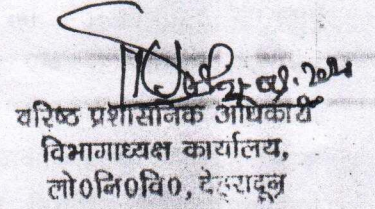 वरिष्ठ प्रशासनिक अधिकारी
विभागाध्यक्ष कार्यालय,
लो०नि०वि०, देहरादून